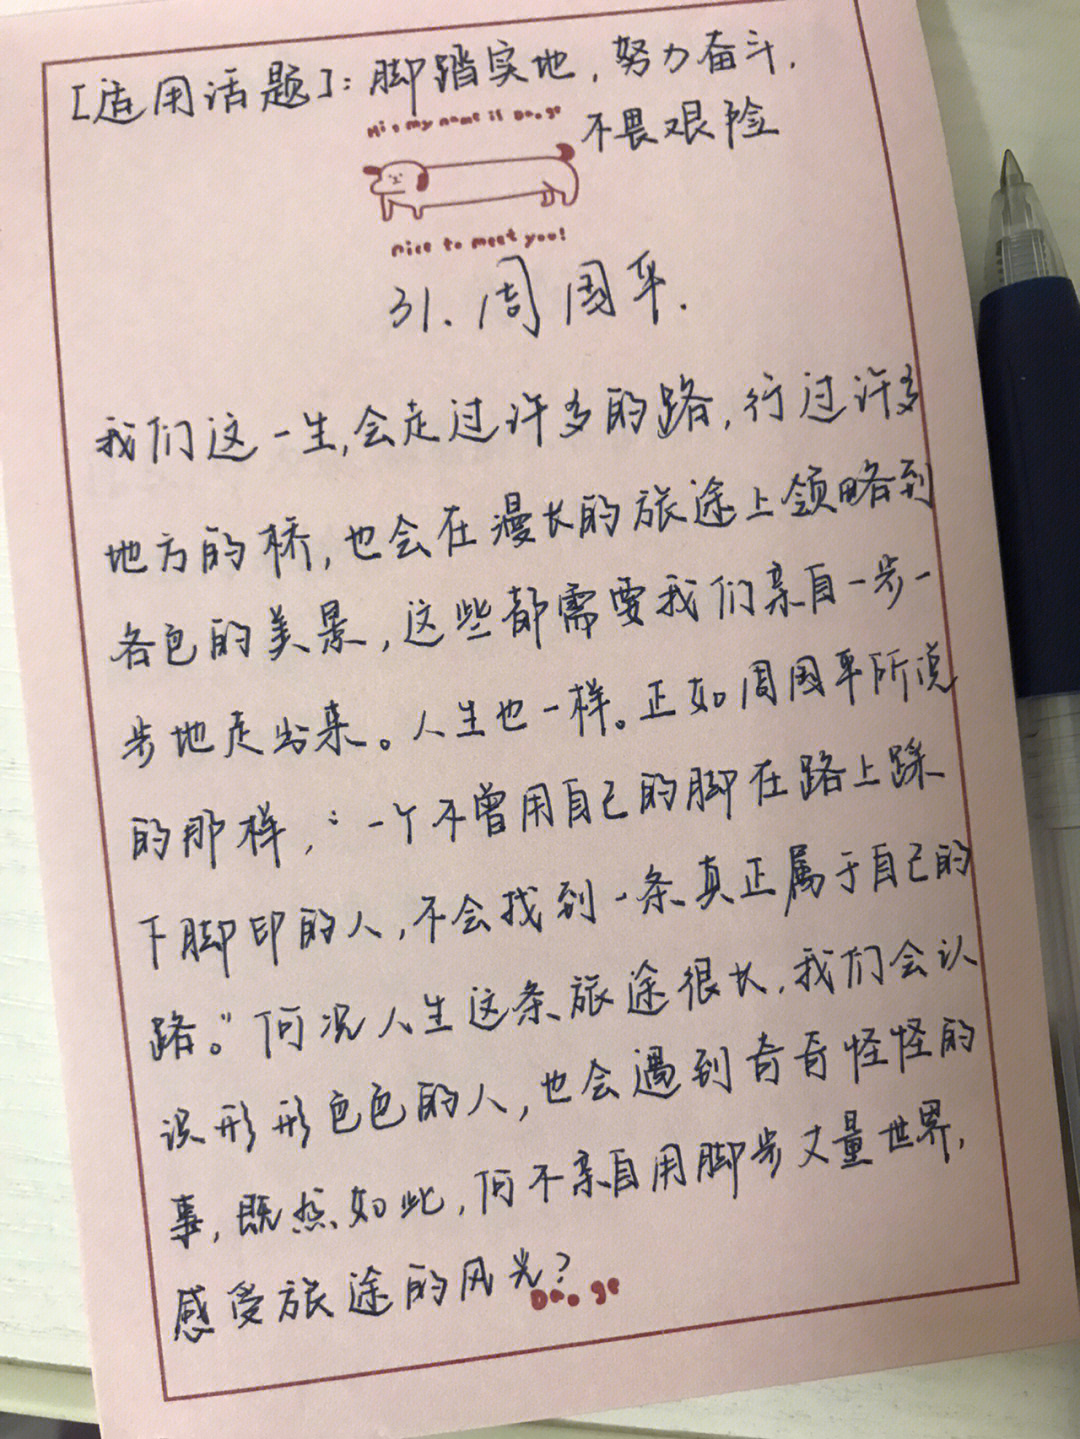 [适用话题]：脚踏实地，努力奋斗，
不畏艰险
Hi, my name is Da.ge
nice to meet you!
31. 周国平.
我们这一生,会走过许多的路,行过许多
地方的桥,也会在漫长的旅途上领略到
各色的美景,这些都需要我们亲自一步一
步地走出来。人生也一样。正如周国平所说
的那样,:一个不曾用自己的脚在路上踩
下脚印的人,不会找到一条真正属于自己的
路。"何况人生这条旅途很长,我们会认
识形形色色的人,也会遇到奇奇怪怪的
事,既然如此,何不亲自用脚步丈量世界,
感受旅途的风光?
Da.ge